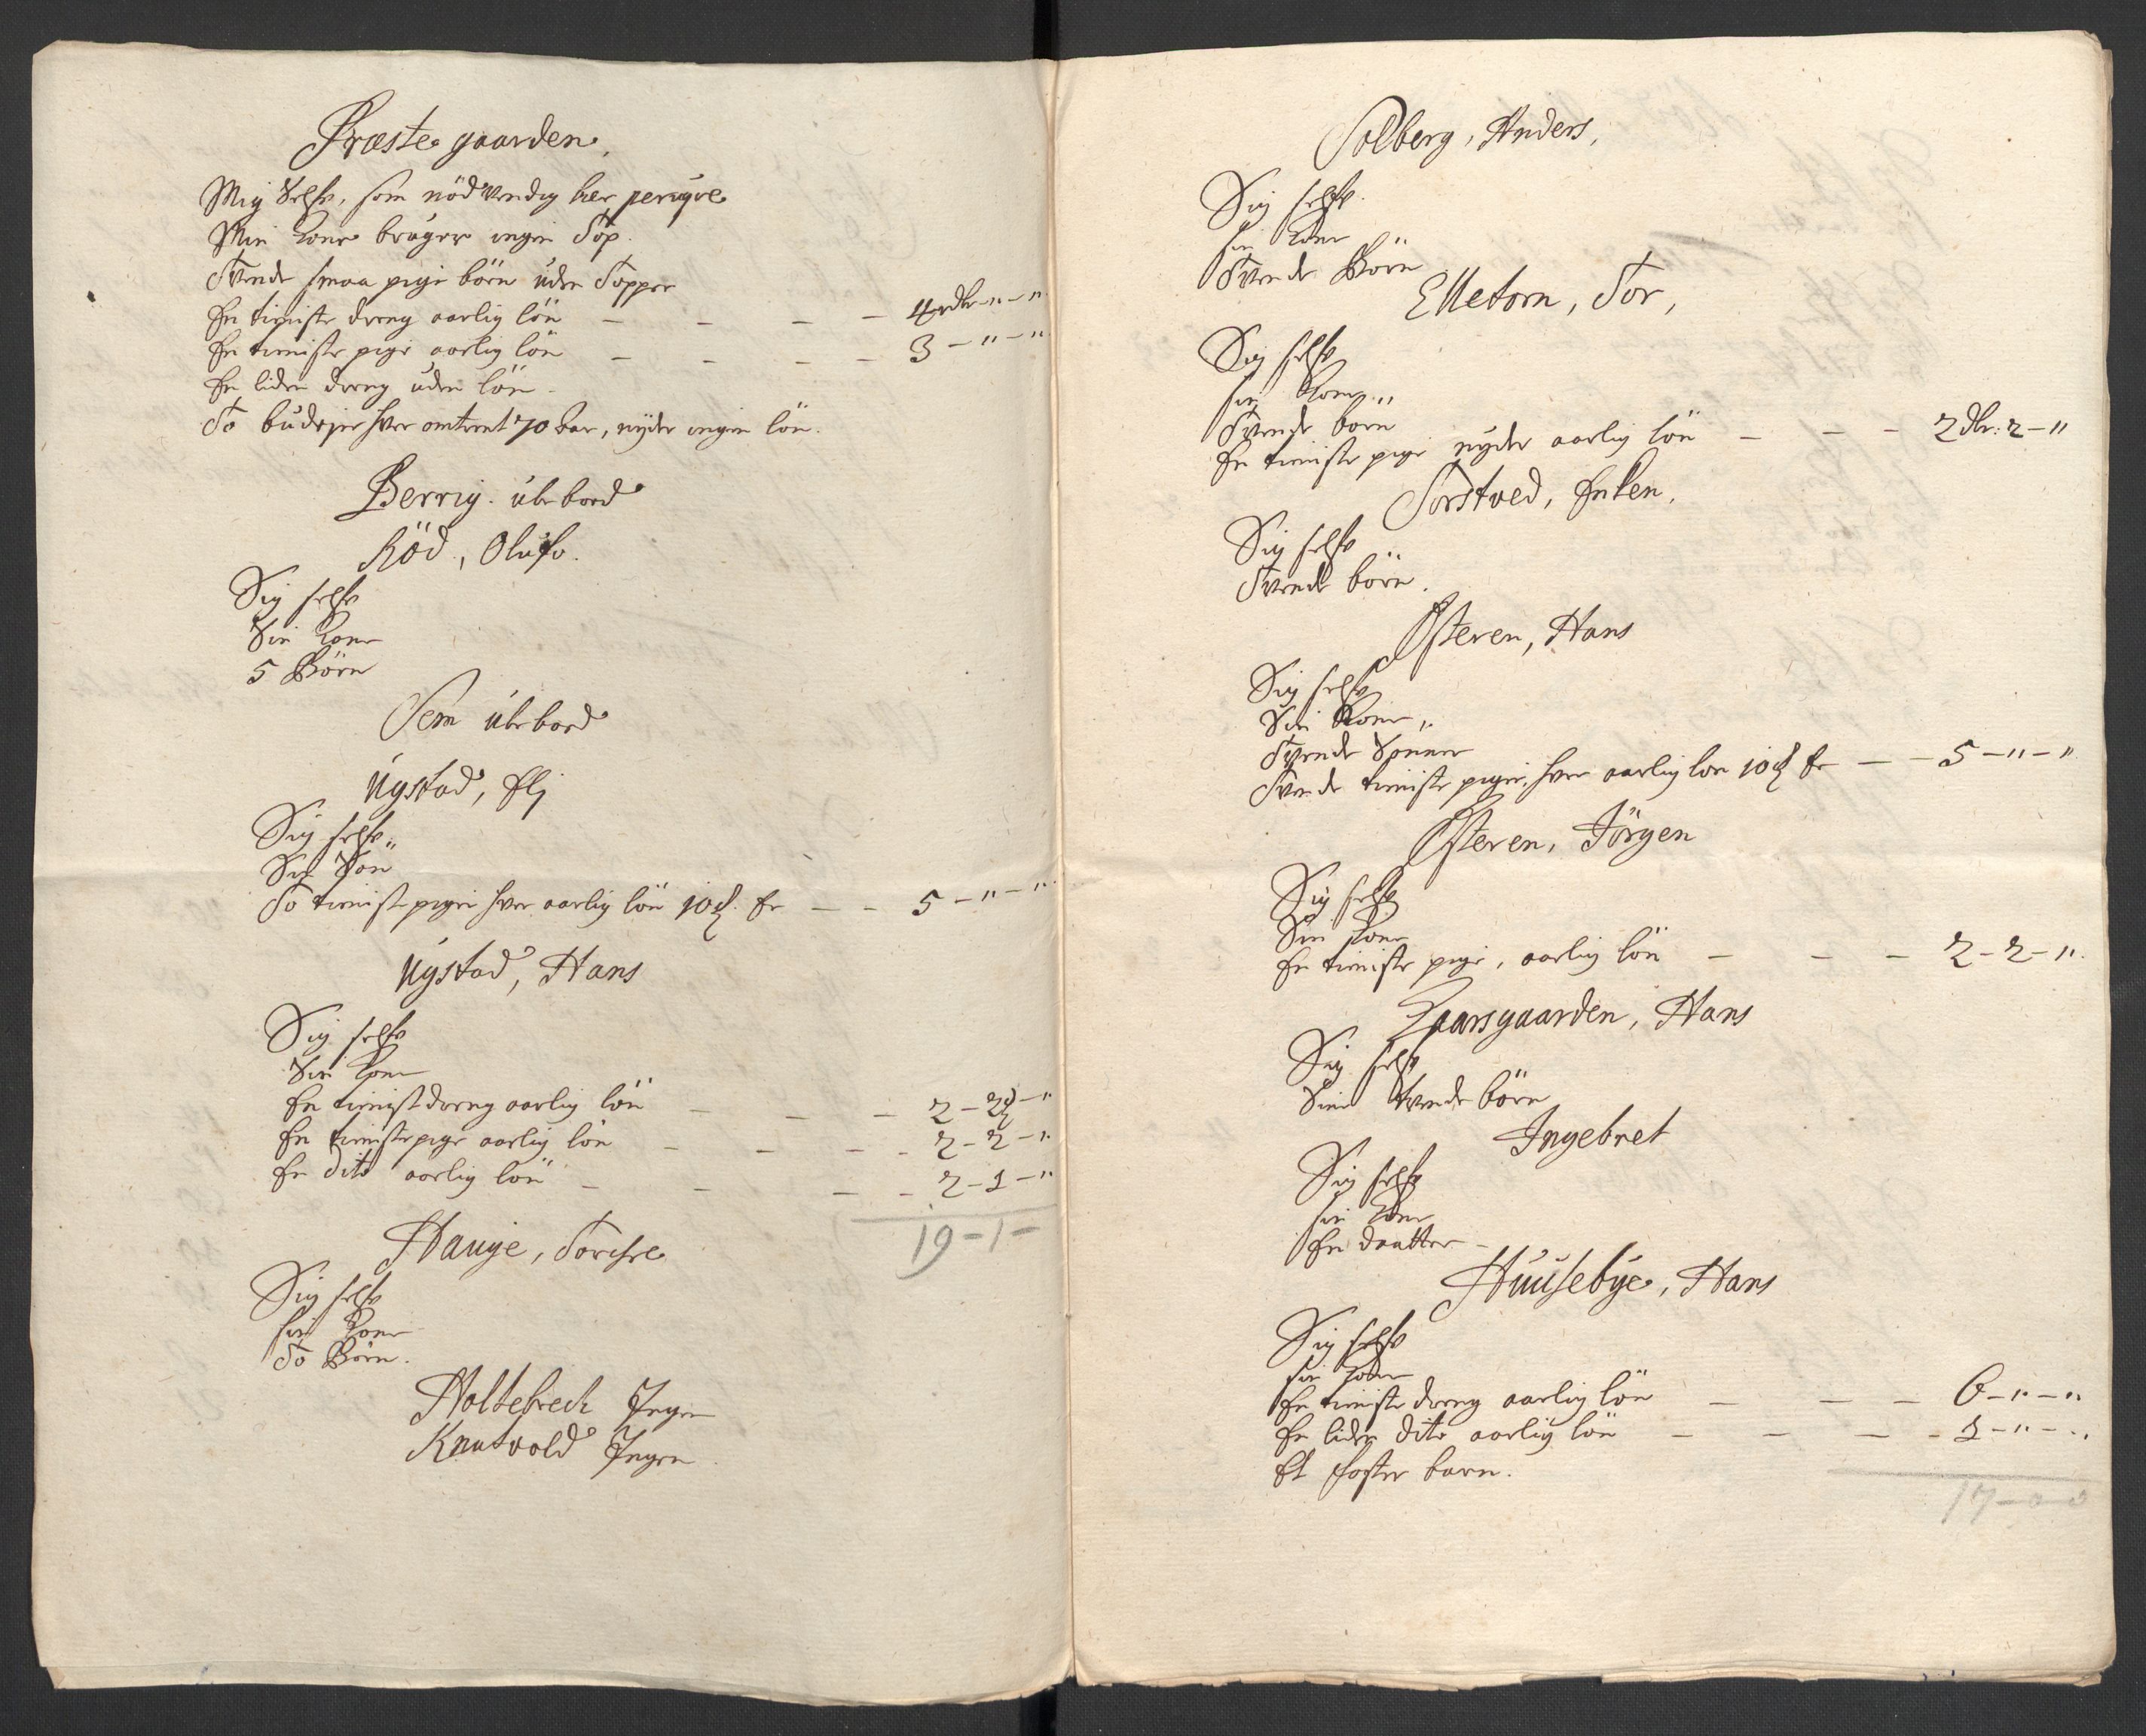 Præste gaarden,
Mig Selfv, som nödvendig bær peruqve
Min Kone bruger ingen Top.
Tvende smaa pige börn uden Topper
En tieniste dreng aarlig lön — — — — 4 rdlr - " - "
En tieniste pige aarlig lön — — — — 3 - " - "
En liden dreng uden lön -
To budejer hver omtrent 70 aar, nyder ingen lön.
Berrig. ubeboed
Röd, Oluf
Sig selfv
Sin Kone
5 Börn
Sem ubeboed
Ugstad, Elj
Sig selfv "
Sin Sön
To tienist piger hver aarlig lön 10 Er — — 5 - " - "
Ugstad, Hans
Sig selfv
Sin Kone
En tienist dreng aarlig lön — — — 2 - 2 - "
En tieniste pige aarlig lön — — — - 2 - 2 - "
En dito aarlig lön — — — - 2 - 1 - "
19 - 1 -
Hauge, Torchel
Sig selfv
sin Kone
To Börn.
Holtebrech Ingen
Knutvold Ingen
Solberg, Anders,
Sig selfv.
sin Kone
Tvende Börn
Elletorn, Tor,
Sig selfv
sin Kone "
Tvende born
En tieniste pige nyder aarlig lön — — — 2 dlr: 2 - "
Torstved, Enken,
Sig selfv
Tvende börn.
Østeren, Hans
Sig selfv
Sin Kone "
Tvende Sönner
Tvende tieniste piger, hver aarlig lön 10 Er — — 5 - " - "
Østeren, Jörgen
Sig selfv
Sin Kone
En tieniste pige, aarlig lön — — — 2 - 2 - "
Laarsgaarden, Hans
Sig selfv
Sine tvende börn
Ingebret
Sig selfv
sin Kone
En daatter -
Huusebye, Hans
Sig selfv
sin Kone
En tieniste dreng aarlig lön — — — 6 - " - "
En liden dito aarlig lön — — — - 1 - " - "
Et foster barn.
17 - 0 - 0